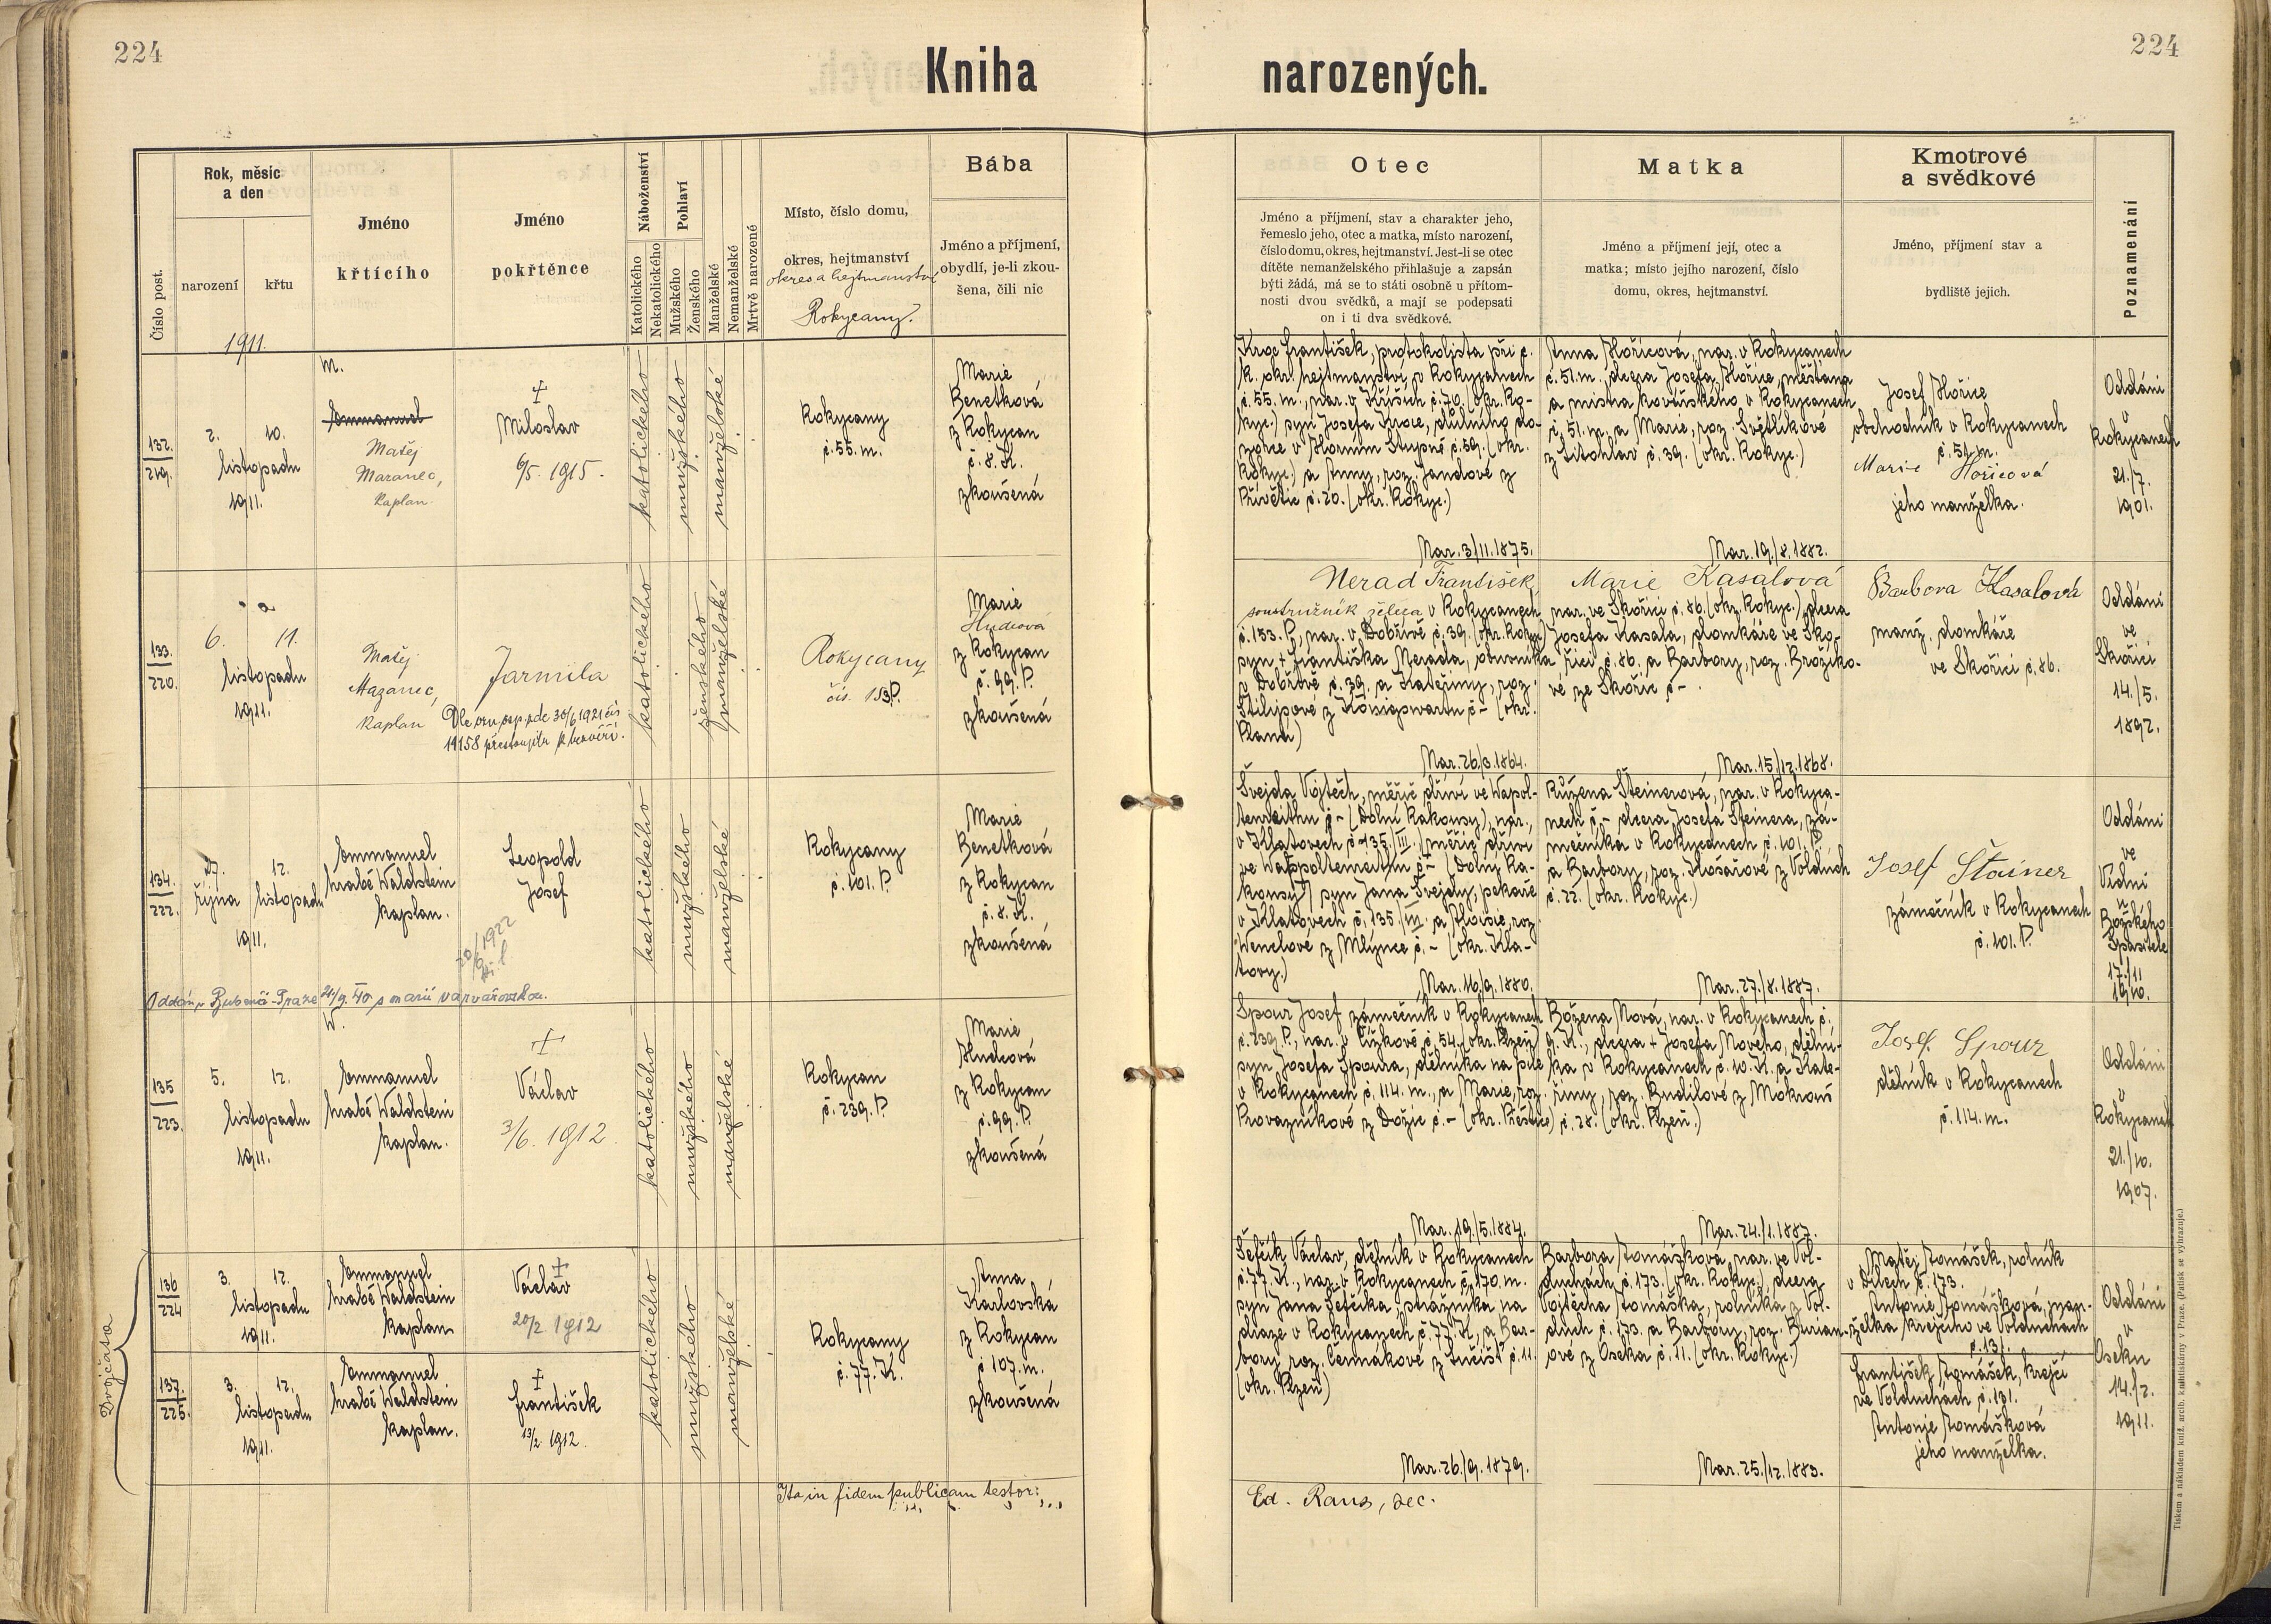 224
Kniha narozených.
224
Číslo post.
Rok, měsíc
a den
narození
křtu
1911.
Jméno
křtícího
Jméno
pokřtěnce
Náboženství
Katolického
Nekatolického
Pohlaví
Mužského
Ženského
Manželské
Nemanželské
Mrtvě narozené
Místo, číslo domu,
okres, hejtmanství
okres a hejtmanství
Rokycany.
Bába
Jméno a příjmení,
obydlí, je-li zkou-
šena, čili nic
Otec
Jméno a příjmení, stav a charakter jeho,
řemeslo jeho, otec a matka, místo narození,
číslo domu, okres, hejtmanství. Jest-li se otec
dítěte nemanželského přihlašuje a zapsán
býti žádá, má se to státi osobně u přítom-
nosti dvou svědků, a mají se podepsati
on i ti dva svědkové.
Matka
Jméno a příjmení její, otec a
matka; místo jejího narození, číslo
domu, okres, hejtmanství.
Kmotrové
a svědkové
Jméno, příjmení stav a
bydliště jejich.
Poznamenání
132.
219.
2. 10.
listopadu
1911.
m.
Emmanuel
Matěj
Maranec,
kaplan
+
Miloslav
6/5. 1915.
katolického
mužského
manželské
Rokycany
č. 55. m.
Marie
Benetková
z Rokycan
č. 8. K.
zkoušená
Kroc František, protokolista při c.
k. okr. hejtmanství v Rokycanech
č. 55. m., nar. v Kříších č. 70. (okr. Ro-
kyc.) syn Josefa Kroce, důlního do-
zorce v Horním Stupně č. 59. (okr.
Rokyc.) a Anny, roz. Jandové z
Přívětic č. 20. (okr. Rokyc.)
Nar. 3/11. 1875.
Anna Hořicová, nar. v Rokycanech
č. 51. m., dcera Josefa Hořice, měšťana
a mistra kovářského v Rokycanech
č. 51. m. a Marie, roz. Světlíkové
z Litohlav č. 39. (okr. Rokyc.)
Nar. 19./8. 1882.
Josef Hořice
obchodník v Rokycanech
č. 51. m.
Marie Hořicová
jeho manželka.
Oddáni
v
Rokycanech
21./7.
1901.
133.
220.
6. 11.
listopadu
1911.
Matěj
Mazanec,
kaplan
Jarmila
katolického
ženského
manželské
Rokycany
čís. 153 P.
Marie
Hudcová
z Rokycan
č. 99. P.
zkoušená
Nerad František,
soustružník železa v Rokycanech
č. 153. P., nar. v Dobřívě č. 39. (okr. Rokyc.)
syn + Františka Nerada, obuvníka
v Dobřívě č. 39. a Kateřiny, roz.
Stilipové z Königswartu č – (okr.
Planá)
Nar. 26/3. 1864.
Marie Kasalová
nar. ve Skořici č. 86. (okr. Rokyc.), dcera
Josefa Kasala, domkáře ve Sko-
řici č. 86. a Barbory, roz. Brožíko-
vé ze Skořic č –.
Nar. 15./12. 1868.
Barbora Kasalová
manž. domkáře
ve Skořici č. 86.
Oddáni
ve
Skořici
14./5.
1892.
134.
222.
27. 12.
října listopadu
1911.
Emmanuel
hrabě Waldstein
kaplan.
Leopold
Josef
katolického
mužského
manželské
Rokycany
č. 101. P.
Marie
Benetková
z Rokycan
č. 8. K.
zkoušená
Švejda Vojtěch, měřič dříví ve Wapol-
tenreithu č – (Dolní Rakousy), nar.
v Klatovech č 135./III. (měřič dříví
konsy) syn Jana Švejdy, pekaře
v Klatovech č. 135./III. a Aloisie, roz.
Wenclové z Mlýnce č. – (okr. Kla-
tovy.)
Nar. 16./9. 1880.
Růžena Šteinerová, nar. v Rokyca-
nech č. – dcera Josefa Šteinera, zá-
mečníka v Rokycanech č. 101. P.
a Barbory, roz. Hosařové z Volduch
č. 22. (okr. Rokyc.)
Nar. 27./8. 1887.
Josef Štainer
zámečník v Rokycanech
č. 101. P.
Oddáni
ve
Vídni
u
Božského
Spasitele
17./11
1910.
20/6 1922
135
223.
5. 12.
listopadu
1911.
W.
Emmanuel
hrabě Waldstein
kaplan.
+
Václav
3/6. 1912.
katolického
mužského
manželské
Rokycan
č. 239. P.
Marie
Hudcová
z Rokycan
č. 99. P.
zkoušená
Spour Josef zámečník v Rokycanech
č. 239. P., nar. v Čížkově č. 54. (okr. Plzeň)
syn Josefa Spoura, dělníka na pile
v Rokycanech č. 114. m., a Marie, roz.
Provazníkové z Dožic č. – (okr. Přeštice)
Nar. 19./5. 1884.
Božena Nová, nar. v Rokycanech č.
9. K., dcera + Josefa Nového, dělní-
ka v Rokycanech č. 10. K. a Kate-
řiny, roz. Budilové z Mokrouš
č. 28. (okr. Plzeň.)
Nar. 24./1. 1887.
Josef Spour
dělník v Rokycanech
č. 114. m.
Oddáni
v
Rokycanech
21./10.
1907.
Dvojčata
136
224
3. 12.
listopadu
1911.
Emmanuel
hrabě Waldstein
kaplan
+
Václav
20/2. 1912
katolického
mužského
manželské
Rokycany
č. 77. K.
Anna
Karlovská
z Rokycan
č 107. m.
zkoušená
Šefčík Václav, dělník v Rokycanech
č. 77. K., nar. v Rokycanech č. 170. m.
syn Jana Šefčíka, strážníka na
dráze v Rokycanech č. 77. K., a Bar-
bory, roz. Čermákové z Lučišť č. 11.
(okr. Plzeň)
Nar. 26./9. 1879.
Barbora Tomášková, nar. ve Vol-
duchách č. 173. (okr. Rokyc.) dcera
Vojtěcha Tomáška, rolníka z Vol-
duch č. 173. a Barbory, roz. Burian-
ové z Oseka č. 11. (okr. Rokyc.)
Nar. 25./12. 1883.
Matěj Tomášek, rolník
č. 173.
Antonie Tomášková, man-
želka krejčího ve Volduchách
č. 131.
Oddáni
v
Oseku
14./2.
1911.
137.
225.
3. 12.
listopadu
1911.
Emmanuel
hrabě Waldstein
kaplan.
+
František
13/2. 1912.
František Tomášek, krejčí
ve Volduchách č. 131.
Antonie Tomášková
jeho manželka.
Ita in fidem publicam testor:
Tiskem a nákladem kníž. arcib. knihtiskárny v Praze. (Patisk se vyhrazuje.)